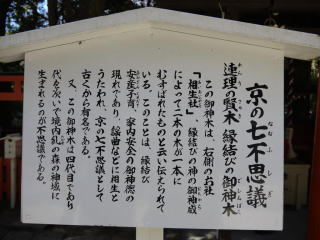 京の七不思議
なな ふ し ぎ
連理の賢木 縁結びの御神木
この御神木は、右側のお社
「相生社」 縁結びの神の御神威
によって二本の木が一本に
むすばれたものと云い伝えられて
いる。このことは、縁結び
安産子育、家内安全の御神徳の
現れであり、謡曲などに相生と
うたわれ、京の七不思議として
古くから有名である。
又、この御神木は四代目であり
代を次いで境内糺の森の神域に
生まれるのが不思議である。